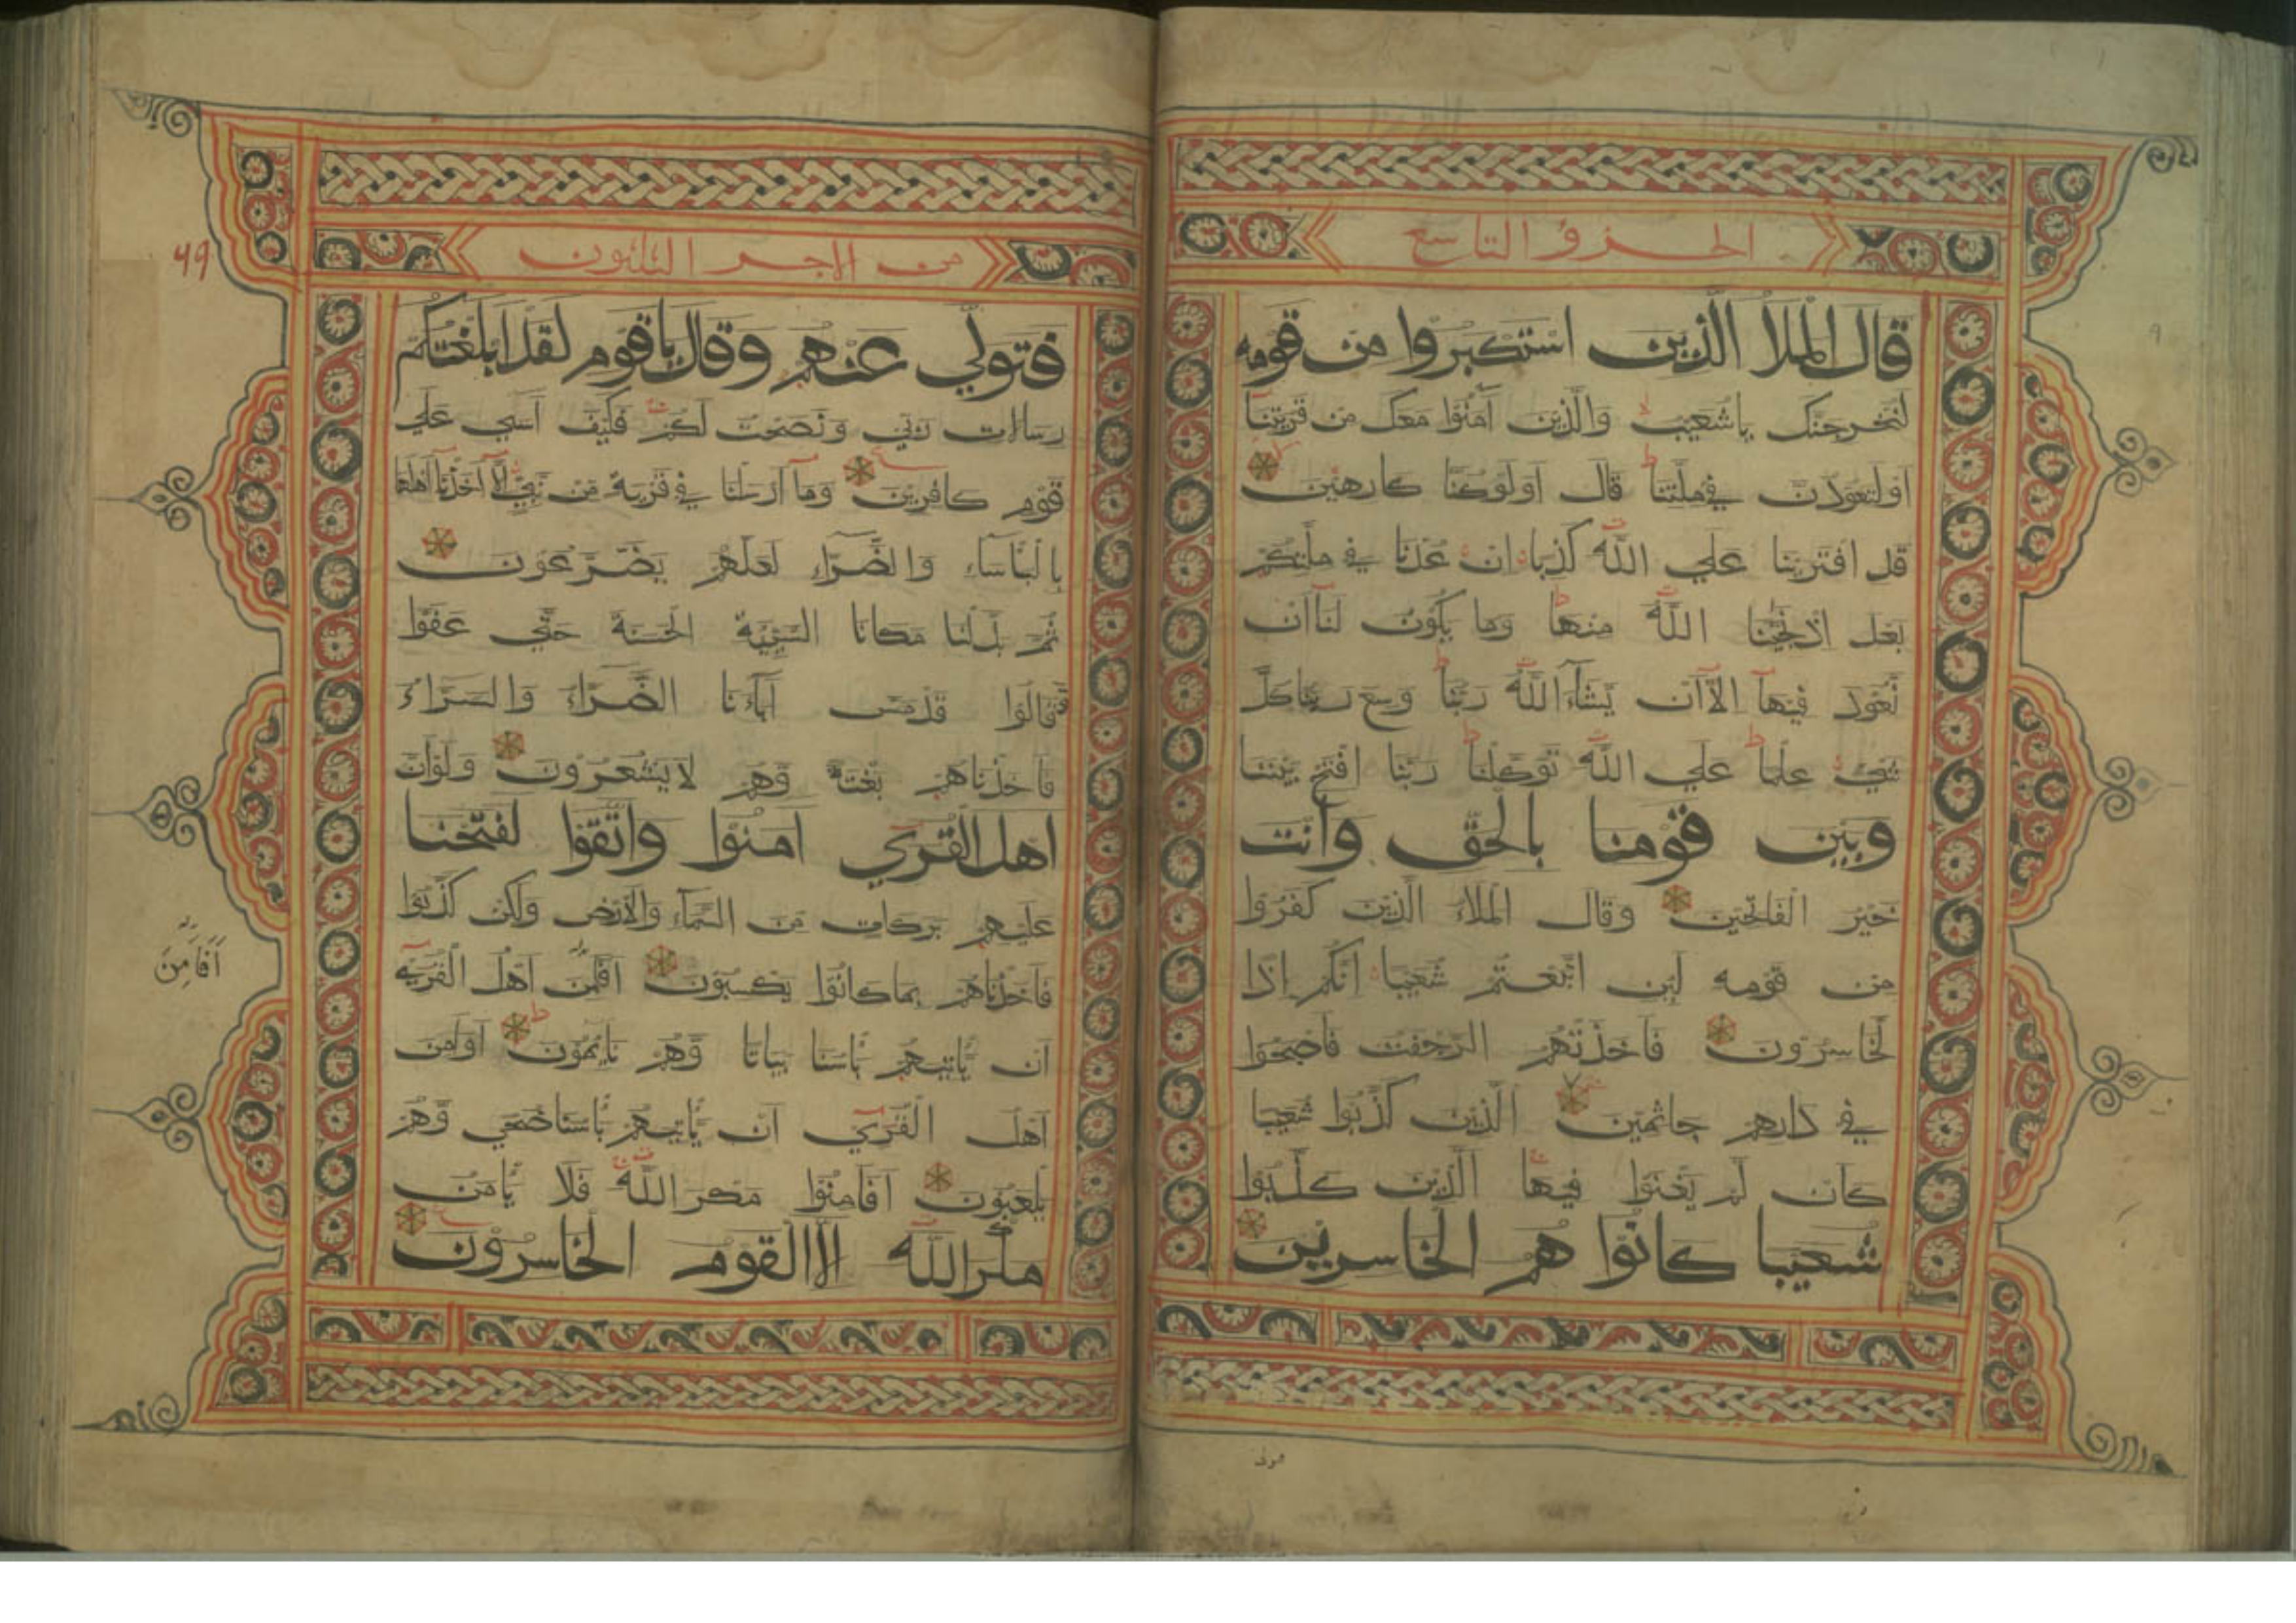 الجزؤ التاسع
قال الملأ الذين استكبروا من قومه
لنخرجنك ياشعيب والذين آمنوا معك من قريتنا
اولتعودن في ملتنا قال اولوكنا كارهين
قد افترينا علي الله كذبا ان عدنا في ملتكم
بعد اذ نجينا الله منها وما يكون لنا ان
نعود فيها الا ان يشاء الله ربنا وسع ربنا كل
شيء علما علي الله توكلنا ربنا افتح بيننا
وبين قومنا بالحق وانت
خير الفاتحين وقال الملاء الذين كفروا
من قومه لئن اتبعتم شعيبا انكم اذا
لخاسرون فاخذتهم الرجفت فاصبحوا
في دارهم جاثمين الذين كذبوا شعيبا
كان لم يغنوا فيها الذين كذبوا
شعيبا كانوا هم الخاسرين
من الاجز الثلثون
49
فتولي عنهم وقال ياقوم لقد ابلغتكم
رسالات ربي ونصحت لكم فكيف آسي علي
قوم كافرين وما ارسلنا في قرية من نبي الا اخذنا اهلها
بالبأساء والضراء لعلهم يضرعون
ثم بدلنا مكانا السيئة الحسنة حتي عفوا
وقالوا قد مس آباءنا الضراء والسراء
فاخذناهم بغتة وهم لايشعرون ولوان
اهل القري امنوا واتقوا لفتحنا
عليهم بركات من السماء والارض ولكن كذبوا
فاخذناهم بماكانوا يكسبون افامن اهل القري
ان يأتيهم بأسنا بياتا وهم نايمون اوامن
اهل القري ان يأتيهم بأسنا ضحي وهم
يلعبون افامنوا مكر الله فلا يأمن
مكر الله الا القوم الخاسرون
أفأمن